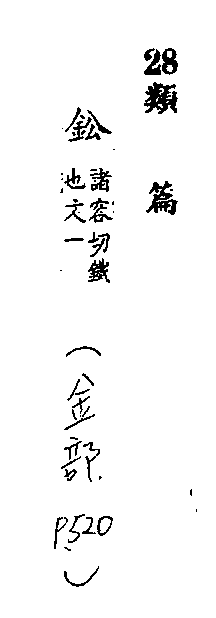 28類篇
鈆 諸容切鐵
也文一
（金部 P520）